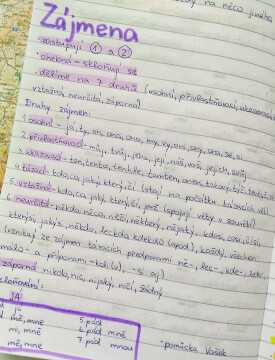 na něco jiného
Zájmena
- zastupují ① a ②
- ohebná - skloňují se
- dělíme na 7 druhů (osobní, přivlastňovací, ukazovací
vztažná, neurčitá, záporná)
Druhy zájmen:
1. osobní - já, ty, on, ona, ono, my, vy, oni, ony, ona, se, si
2. přivlastňovací - můj, tvůj, jeho, její, náš, váš, jejich, svůj
3. ukazovací - ten, tento, tenhle, tamten, onen, takový, týž, tentýž
4. tázací - kdo, co, jaký, který, čí (stojí na počátku tázacích vět)
5. vztažná - kdo, co, jaký, který, čí, jenž (spojují věty v souvětí)
6. neurčitá - někdo, něco, něčí, některý, nějaký, kdosi, cosi, čísi,
kterýsi, jakýs, někdo, leckdo, kdekdo (apod.), každý, všechen
(vznikají ze zájmen tázacích předponami ně-, lec-, kde-,
málo- a příponami -koli(v), -si aj.)
záporná - nikdo, nic, nijaký, ničí, žádný
skloňování:
JÁ
já
mě, mně 5. pád
mi, mně 6. pád mně
mě 7. pád mnou
- pomůcka